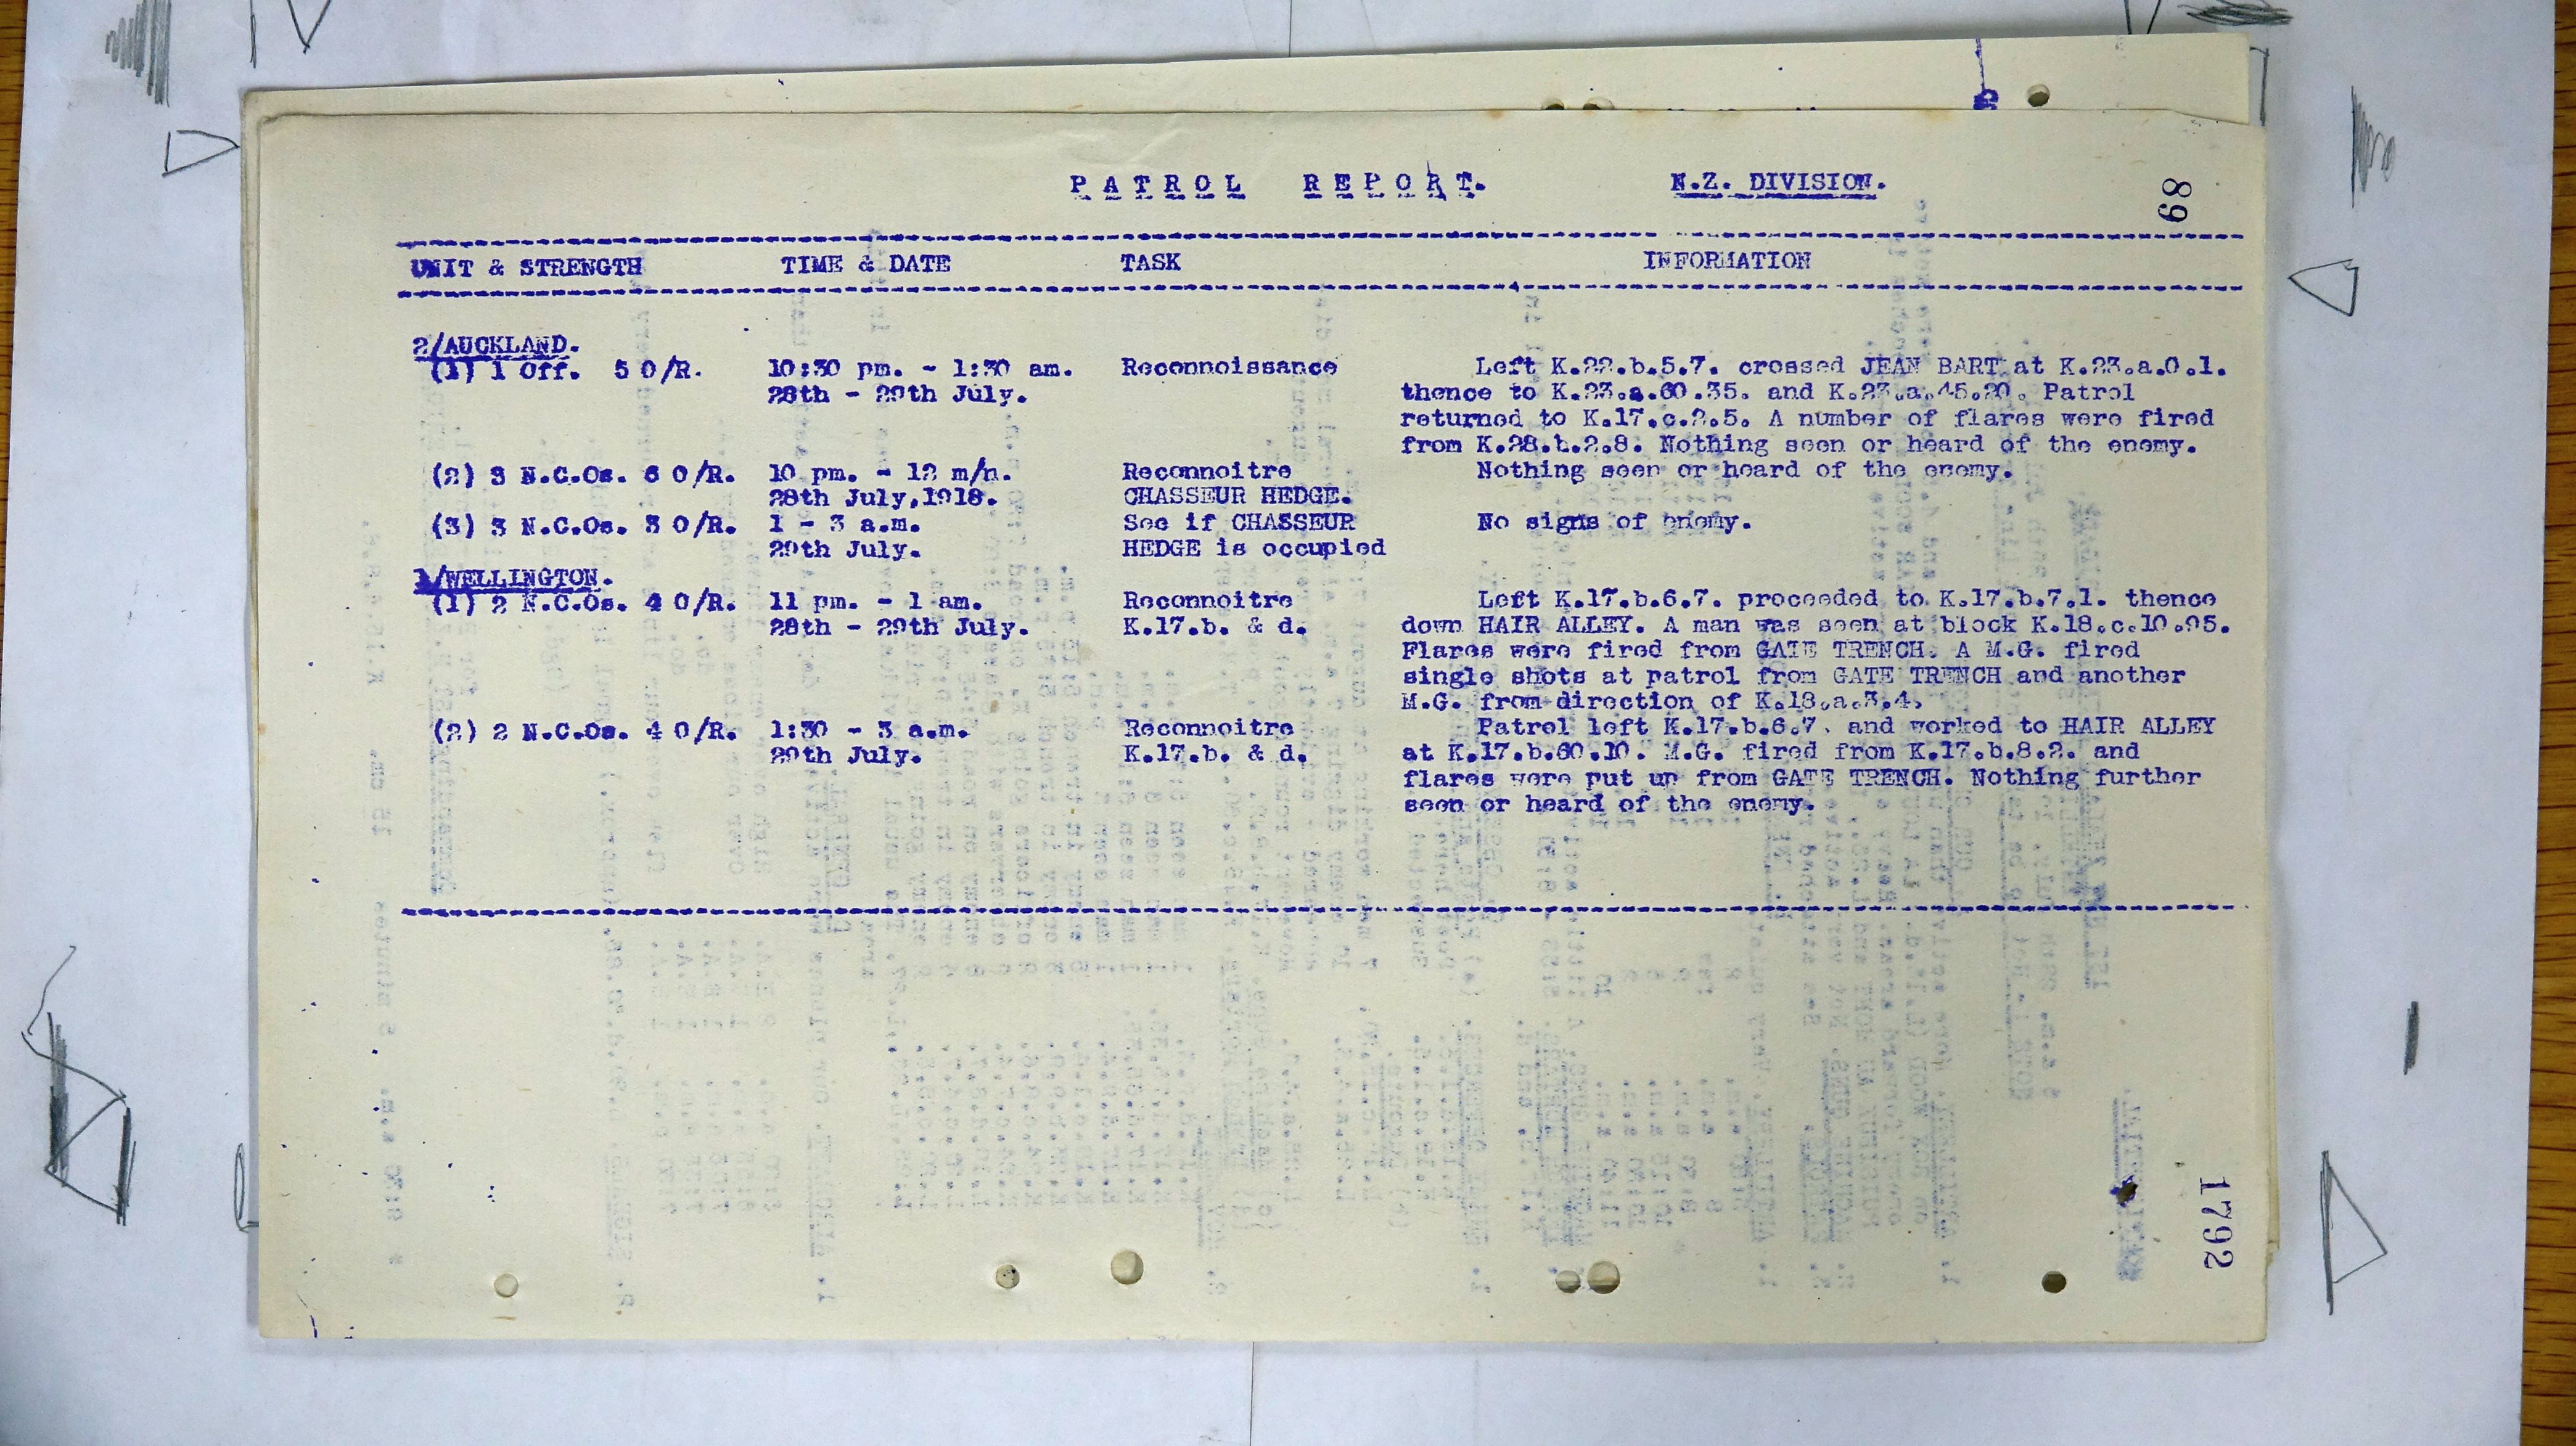 PATROL REPORT. N.Z. DIVISION.
89
UNIT & STRENGTH TIME & DATE TASK INFORMATION
2/AUCKLAND.
(1) 1 Off. 5 O/R. 10:30 pm. - 1:30 am. Reconnoissance Left K.22.b.5.7. crossed JEAN BART at K.23.a.0.1.
28th - 29th July. thence to K.23.a.60.35. and K.23.a.45.20. Patrol
returned to K.17.c.2.5. A number of flares were fired
from K.28.b.2.8. Nothing seen or heard of the enemy.
(2) 3 N.C.Os. 6 O/R. 10 pm. - 12 m/n. Reconnoitre Nothing seen or heard of the enemy.
28th July,1918. CHASSEUR HEDGE.
(3) 3 N.C.Os. 3 O/R. 1 - 3 a.m. See if CHASSEUR No signs of enemy.
29th July. HEDGE is occupied
1/WELLINGTON.
(1) 2 N.C.Os. 4 O/R. 11 pm. - 1 am. Reconnoitre Left K.17.b.6.7. proceeded to K.17.b.7.1. thence
28th - 29th July. K.17.b. & d. down HAIR ALLEY. A man was seen at block K.18.c.10.95.
Flares were fired from GATE TRENCH. A M.G. fired
single shots at patrol from GATE TRENCH and another
M.G. from direction of K.18.a.3.4.
(2) 2 N.C.Os. 4 O/R. 1:30 - 3 a.m. Reconnoitre Patrol left K.17.b.6.7. and worked to HAIR ALLEY
29th July. K.17.b. & d. at K.17.b.60.10. M.G. fired from K.17.b.8.2. and
flares were put up from GATE TRENCH. Nothing further
seen or heard of the enemy.
1792